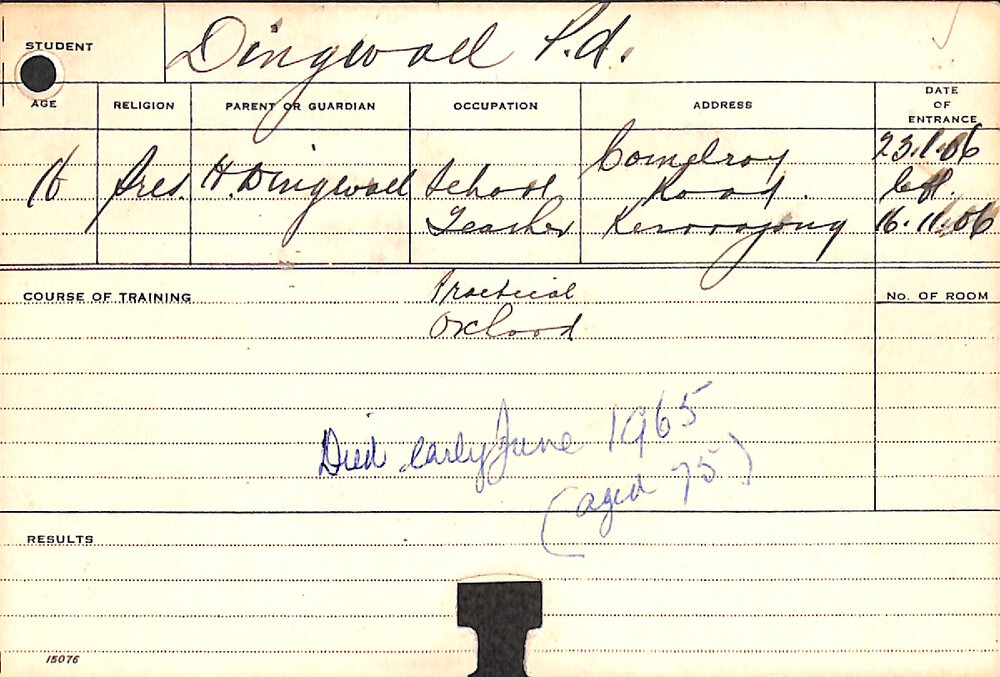 STUDENT Dingwall P.d.
AGE RELIGION PARENT OR GUARDIAN OCCUPATION ADDRESS DATE OF ENTRANCE
16 Pres. H. Dingwall School Teacher Comelroy Road Kurrajong 23.1.06
left
16.11.06
COURSE OF TRAINING Practical No. OF ROOM
Orchard
Died early June 1965
(aged 75)
RESULTS
15076